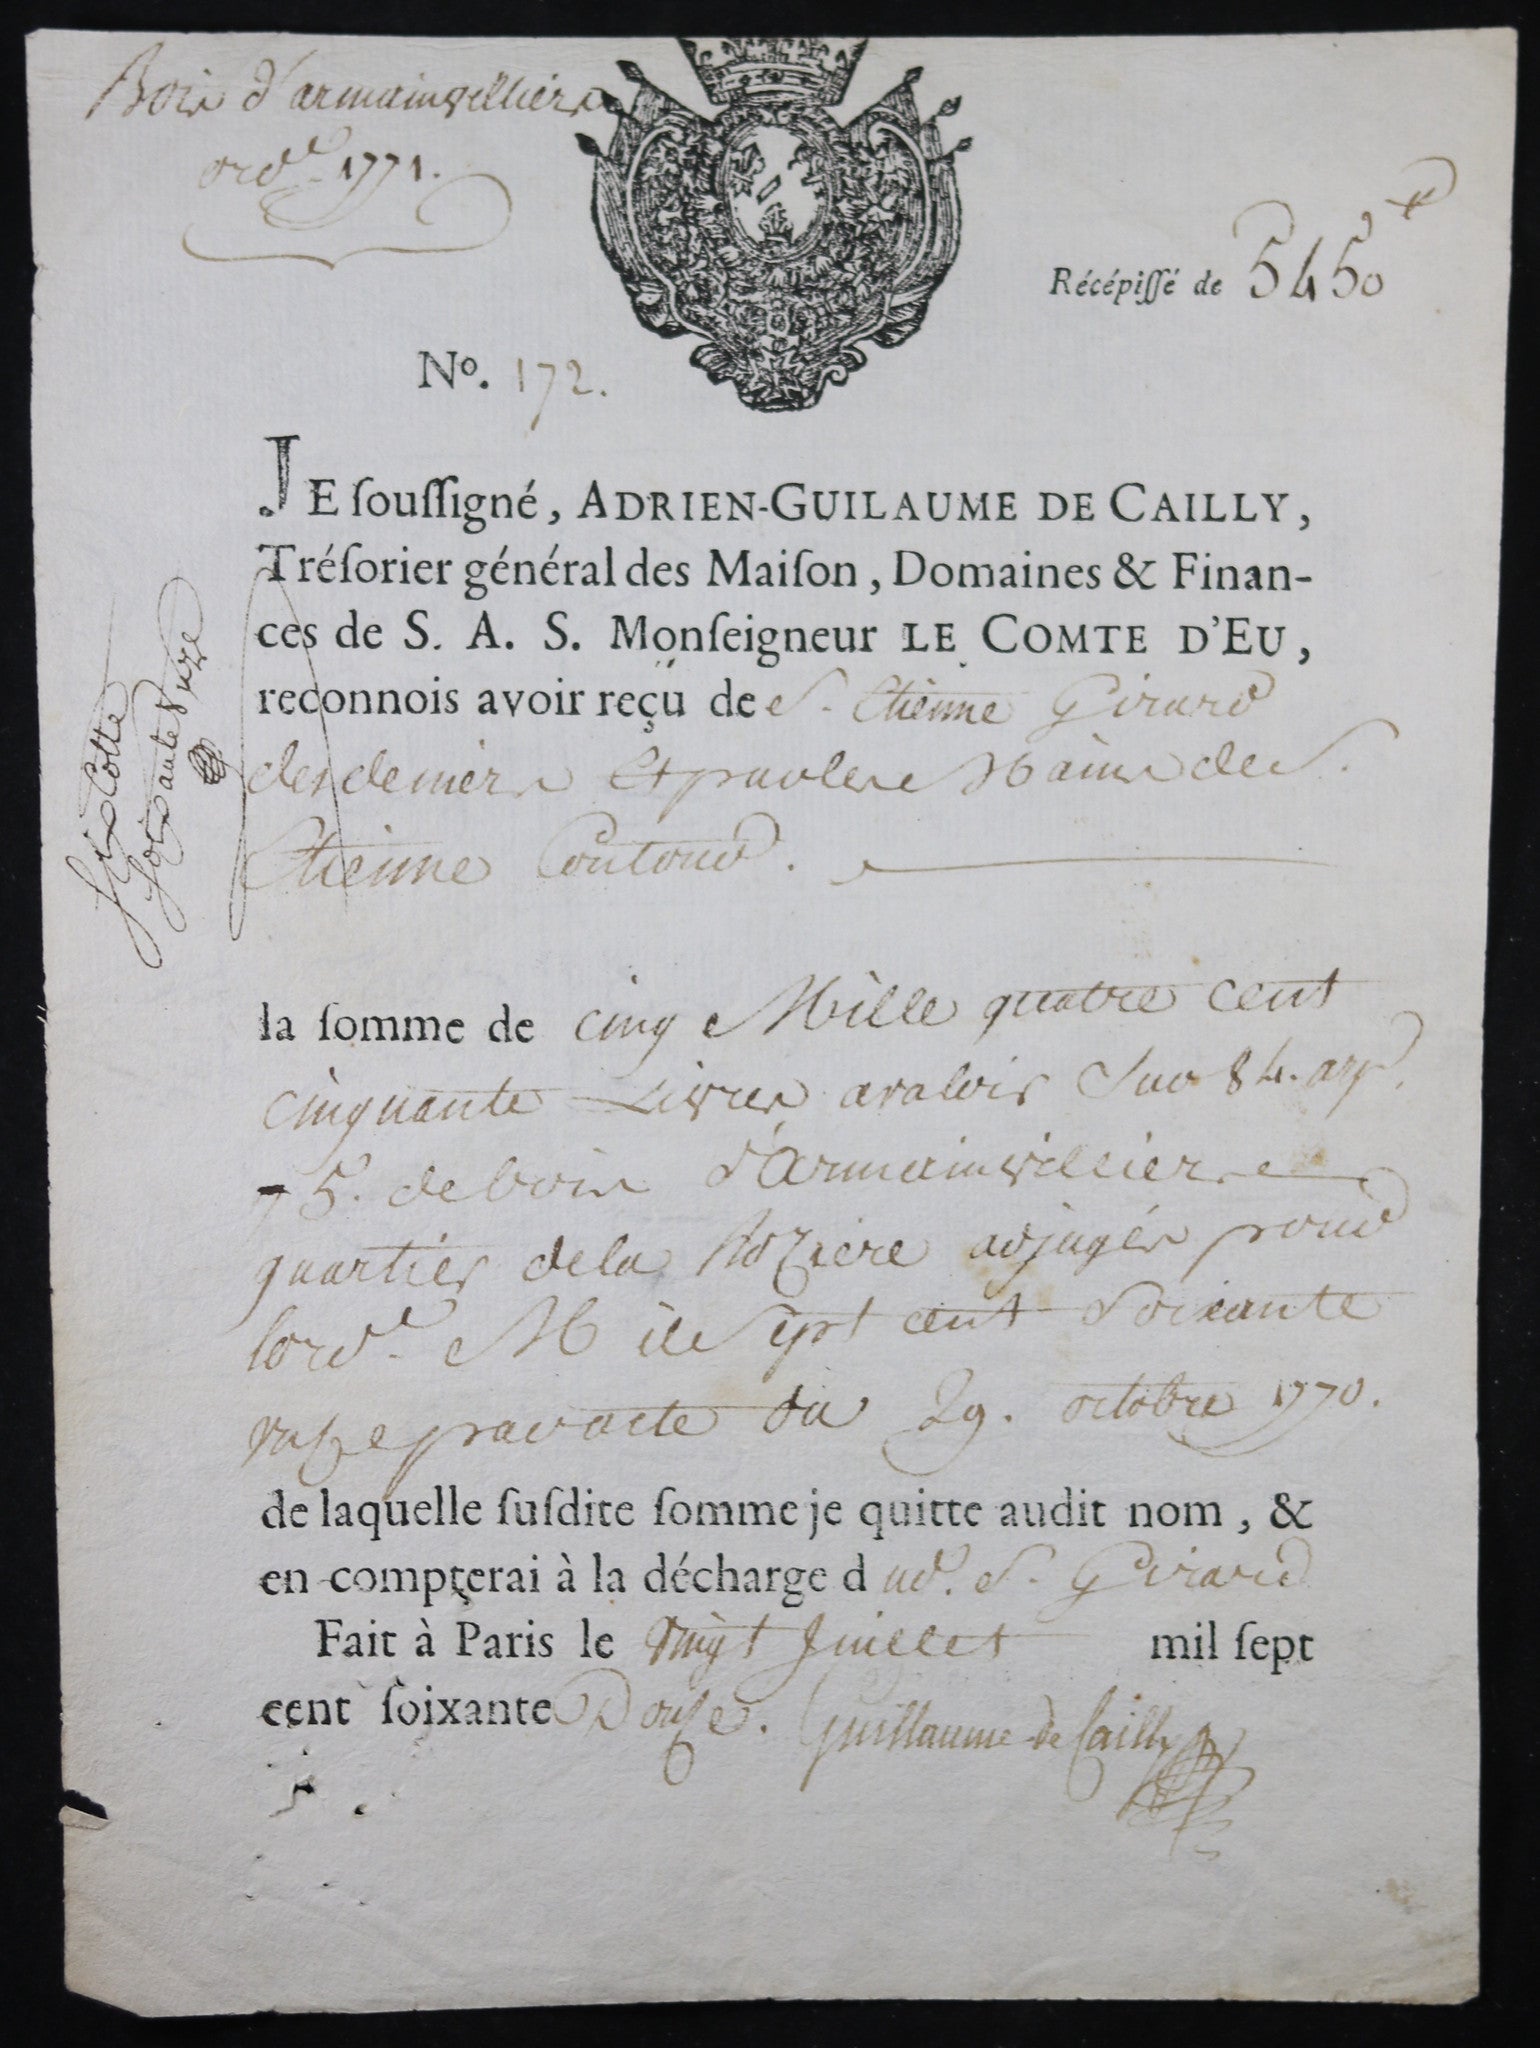 Bois d'armainvilliers
ord.re 1771.
Récépissé de 5450 ₶
No. 172.
JE soussigné, ADRIEN-GUILAUME DE CAILLY,
Trésorier général des Maison, Domaines & Finan-
ces de S. A. S. Monseigneur LE COMTE D'EU,
reconnois avoir reçu de S. Etienne Girard
des deniers Et par les Mains de S.
Etienne Coutour.
la somme de cinq Mille quatre cent
cinquante Livres avaloir Sur 84. arp.
75. de bois d'Armainvilliers
quartier de la Roziere adjugés pour
lord.re Mil Sept cent Soixante
unze par acte du 29. octobre 1770.
de laquelle susdite somme je quitte audit nom, &
en compterai à la décharge d ud. S. Girard
Fait à Paris le vingt Juillet mil sept
cent soixante Douze. Guillaume de Cailly
Cotté
soixante & unze